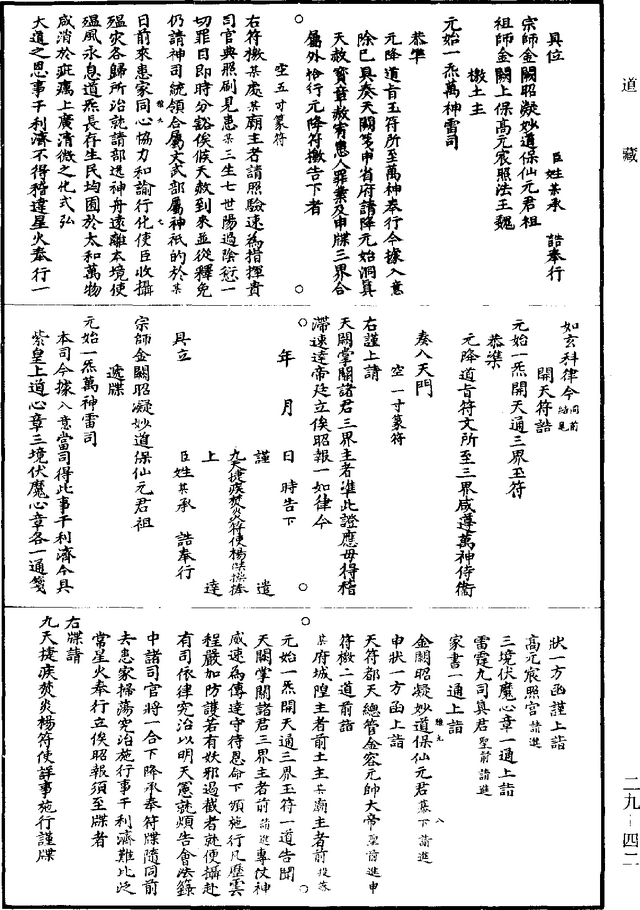 道藏
具位　　　　臣姓某承　誥奉行
宗師金闕昭凝妙道保仙元君祖
祖師金闕上保高元宸照法王魏
檄土主
元始一炁萬神雷司
恭準
元降道旨玉符所至萬神奉行今據入意
除已具奏天闕箋申省府請降元始洞真
天赦寶章赦宥患人罪業及申牒三界合
屬外恰行元降符檄告下者
空五寸篆符
右符檄某處某廟主者請照驗速為指揮責
司官典照刷見患某三生七世陽過陰愆一
切罪目即時分豁俟候天赦到來並從釋免
仍請神司統領合屬文武部屬神祇的於某
日前來患家同心協力和諭行化使臣收攝
瘟灾各歸所治就請部送神舟遠離本境使
瘟風永息道炁長存生民均囿於太和萬物
咸消於疵癘上廣清微之化式弘
大道之恩事干利濟不得稽違星火奉行一
如玄科律令同前結尾
開天符誥
元始一炁開天通三界玉符
恭準
元降道旨符文所至三界咸遵萬神侍衛
奏入天門
空一寸篆符
右謹上請
天闕掌關諸君三界主者準此證應毋得稽
滯速達帝廷立俟昭報一如律令
年　月　日　時告下
謹　遣
九天捷疾焚炎符使楊傑捧
上　達
具立　　　臣姓某承　誥奉行
宗師金闕昭凝妙道保仙元君祖
遞牒
元始一炁萬神雷司
本司今據入意當司得此事干利濟今具
紫皇上道心章三境伏魔心章各一通箋
狀一方函謹上詣
高元宸照宫請進
三境伏魔心章一通上詣
雷霆九司真君聖前請進
家書一通上詣
金闕昭凝妙道保仙元君幕下請進
申狀一方函上詣
天符都天總管金容元帥大帝聖前進申
符檄二道前詣
某府城隍主者前土主某廟主者前投落
元始一炁開天通三界玉符一道告聞
天闕掌關諸君三界主者前請進專仗神
威速為傳達守待恩命下頒施行凡歷雲
程嚴加防護若有妖邪過截者就便攝赴
有司依律究治以明天憲就煩告會法籙
中諸司官將一合下降承奉符牒隨同前
去患家掃蕩究治施行事干利濟難比泛
常星火奉行立俟昭報須至牒者
右牒請
九天捷疾焚炎楊符使詳事施行謹牒
二九－四二